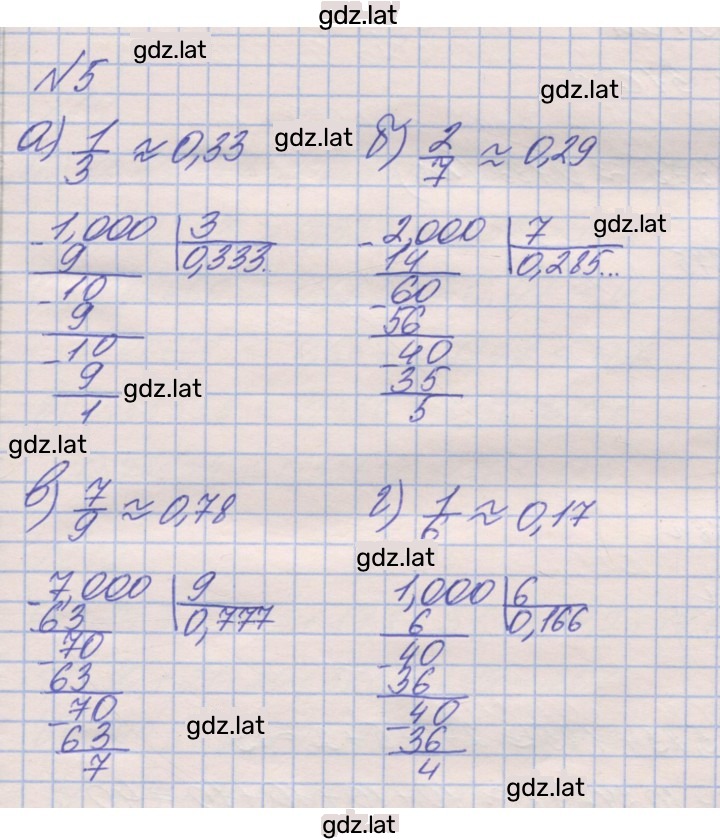 gdz.lat
gdz.lat
№5
gdz.lat
а) 1/3 ≈ 0,33
gdz.lat
б) 2/7 ≈ 0,29
1,000 | 3
- 9 | 0,333..
- 10
9
- 10
9
1
gdz.lat
2,000 | 7
- 14 | 0,285...
- 60
56
- 40
35
5
gdz.lat
gdz.lat
в) 7/9 ≈ 0,78
г) 1/6 ≈ 0,17
gdz.lat
7,000 | 9
- 63 | 0,777
- 70
63
- 70
63
7
gdz.lat
1,000 | 6
6 | 0,166
- 40
36
- 40
36
4
gdz.lat
gdz.lat